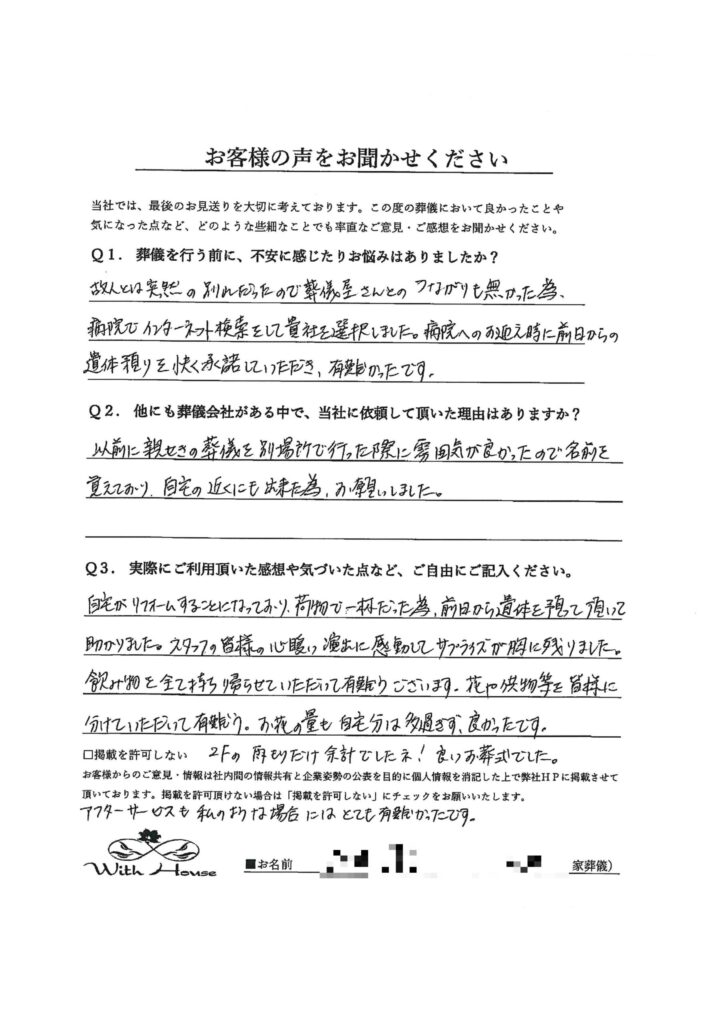 お客様の声をお聞かせください
当社では、最後のお見送りを大切に考えております。この度の葬儀において良かったことや
気になった点など、どのような些細なことでも率直なご意見・ご感想をお聞かせください。
Q1. 葬儀を行う前に、不安に感じたりお悩みはありましたか？
故人とは突然の別れだったので葬儀屋さんとのつながりも無かった為、
病院でインターネット検索をして貴社を選択しました。病院へのお迎え時に前日からの
遺体預りを快く承諾していただき、有難かったです。
Q2. 他にも葬儀会社がある中で、当社に依頼して頂いた理由はありますか？
以前に親せきの葬儀を別場所で行った際に雰囲気が良かったので名前を
覚えており、自宅の近くにも出来た為、お願いしました。
Q3. 実際にご利用頂いた感想や気づいた点など、ご自由にご記入ください。
自宅がリフォームすることになっており、荷物で一杯だった為、前日から遺体を預って頂いて
助かりました。スタッフの皆様の心暖い演出に感動してサプライズが胸に残りました。
飲み物を全て持ち帰らせていただいて有難うございます。花や供物等を皆様に
分けていただいて有難う。お花の量も自宅分は多過ぎず、良かったです。
□掲載を許可しない 2Fの雨もりだけ余計でしたネ！良いお葬式でした。
お客様からのご意見・情報は社内間の情報共有と企業姿勢の公表を目的に個人情報を消記した上で弊社HPに掲載させて
頂いております。掲載を許可頂けない場合は「掲載を許可しない」にチェックをお願いいたします。
アフターサービスも私のような場合にはとても有難かったです。
With House ■お名前 家葬儀）